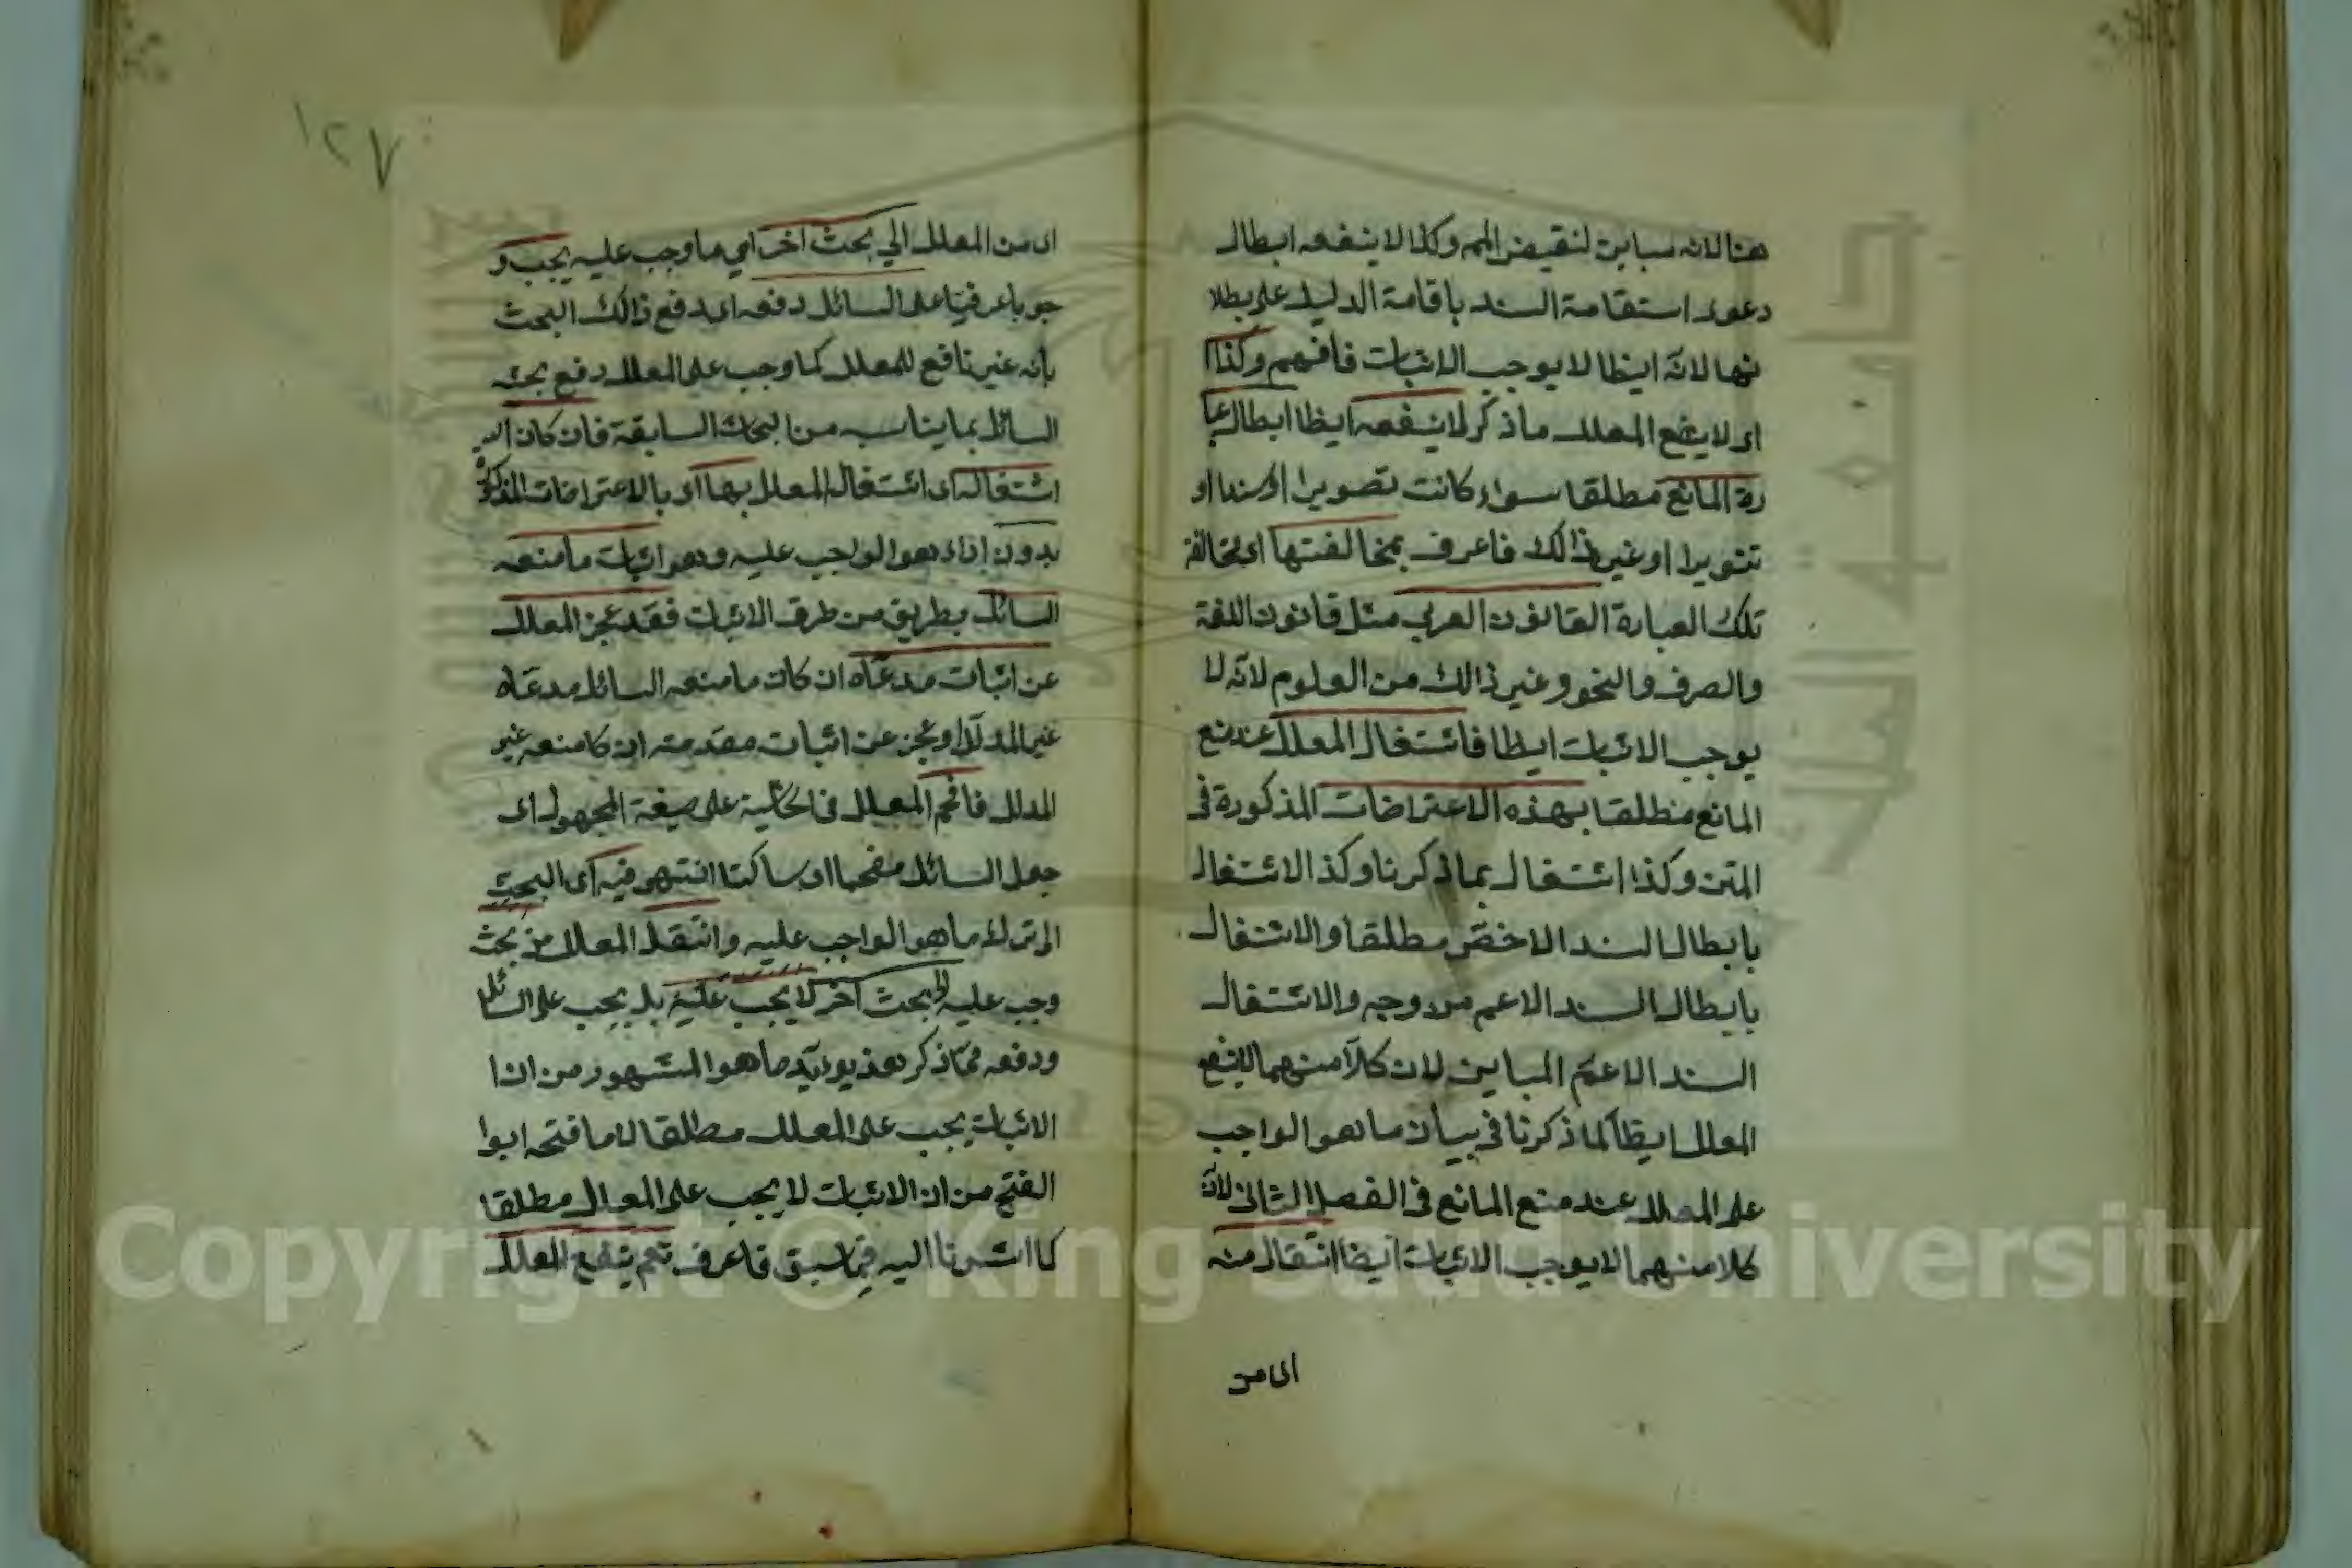 هنا لانه مباين لنقيض المم وكذا لا ينفعه ابطال
دعوى استقامة السند باقامة الدليل على بطلا
نها لانه ايظا لا يوجب الاثبات فافهم وكذا
اى لا ينفع المعلل ماذكر لا ينفعه ايظا ابطال عبا
رة المانع مطلقا سواء كانت تصويرا او سندا او
تنويرا او غير ذالك فاعرف بمخالفتها اى مخالفة
تلك العبارة القانون العربي مثل قانون اللغة
والصرف والنحو وغير ذالك من العلوم لانه لا
يوجب الاثبات ايظا فاشتغال المعلل عند منع
المانع مطلقا بهذه الاعتراضات المذكورة في
المتن وكذا اشتغال بماذكرنا وكذ الاشتغال
بابطال السند الاخص مطلقا والاشتغال
بابطال السند الاعم من وجه والاشتغال
السند الاعم المباين لان كلا منهما لا ينفع
المعلل ايظا لماذكرنا في بيان ما هو الواجب
على المعلل عند منع المانع في الفصل الثاني لان
كلا منهما لا يوجب الاثبات ايضا انتقال منه
اى من
١٢٧
اى من المعلل الي بحث اخر اي ما وجب عليه يجب و
جوبا عرفيا على السائل دفعه اى دفع ذالك البحث
بانه غير نافع للمعلل كما وجب على المعلل دفع بحث
السائل بما يناسبه من البحاث السابقة فان كان
اشتغاله اى اشتغال المعلل بها اى بالاعتراضات المذكورة
بدون اداء هوا لواجب عليه وهو اثبات مامنعه
السائل بطريق من طرف الاثبات فقد عجز المعلل
عن اثبات مدعاه ان كان مامنعه السائل مدعاه
غير المدلل او عجز عن اثبات مقدمته ان كا منعه غير
المدلل فافحم المعلل في الحاشية على صيغة المجهول اى
جعل السائل مفحما اى ساكتا انتهى فيه اى البحث
الى ترك ما هو الواجب عليه وانتقل المعلل من بحث
وجب عليه الى بحث آخر لا يجب عليه بل يجب على السائل
ودفعه مماذكر هذ يؤيد ما هو المشهور من ان
الاثبات يجب على المعلل مطلقا لا ما فتحه ابوا
الفتح من ان الاثبات لا يجب على المعلل مطلقا
كما اشرنا اليه فيما سبق فاعرف نعم ينفع المعلل
Copyright © King Saud University